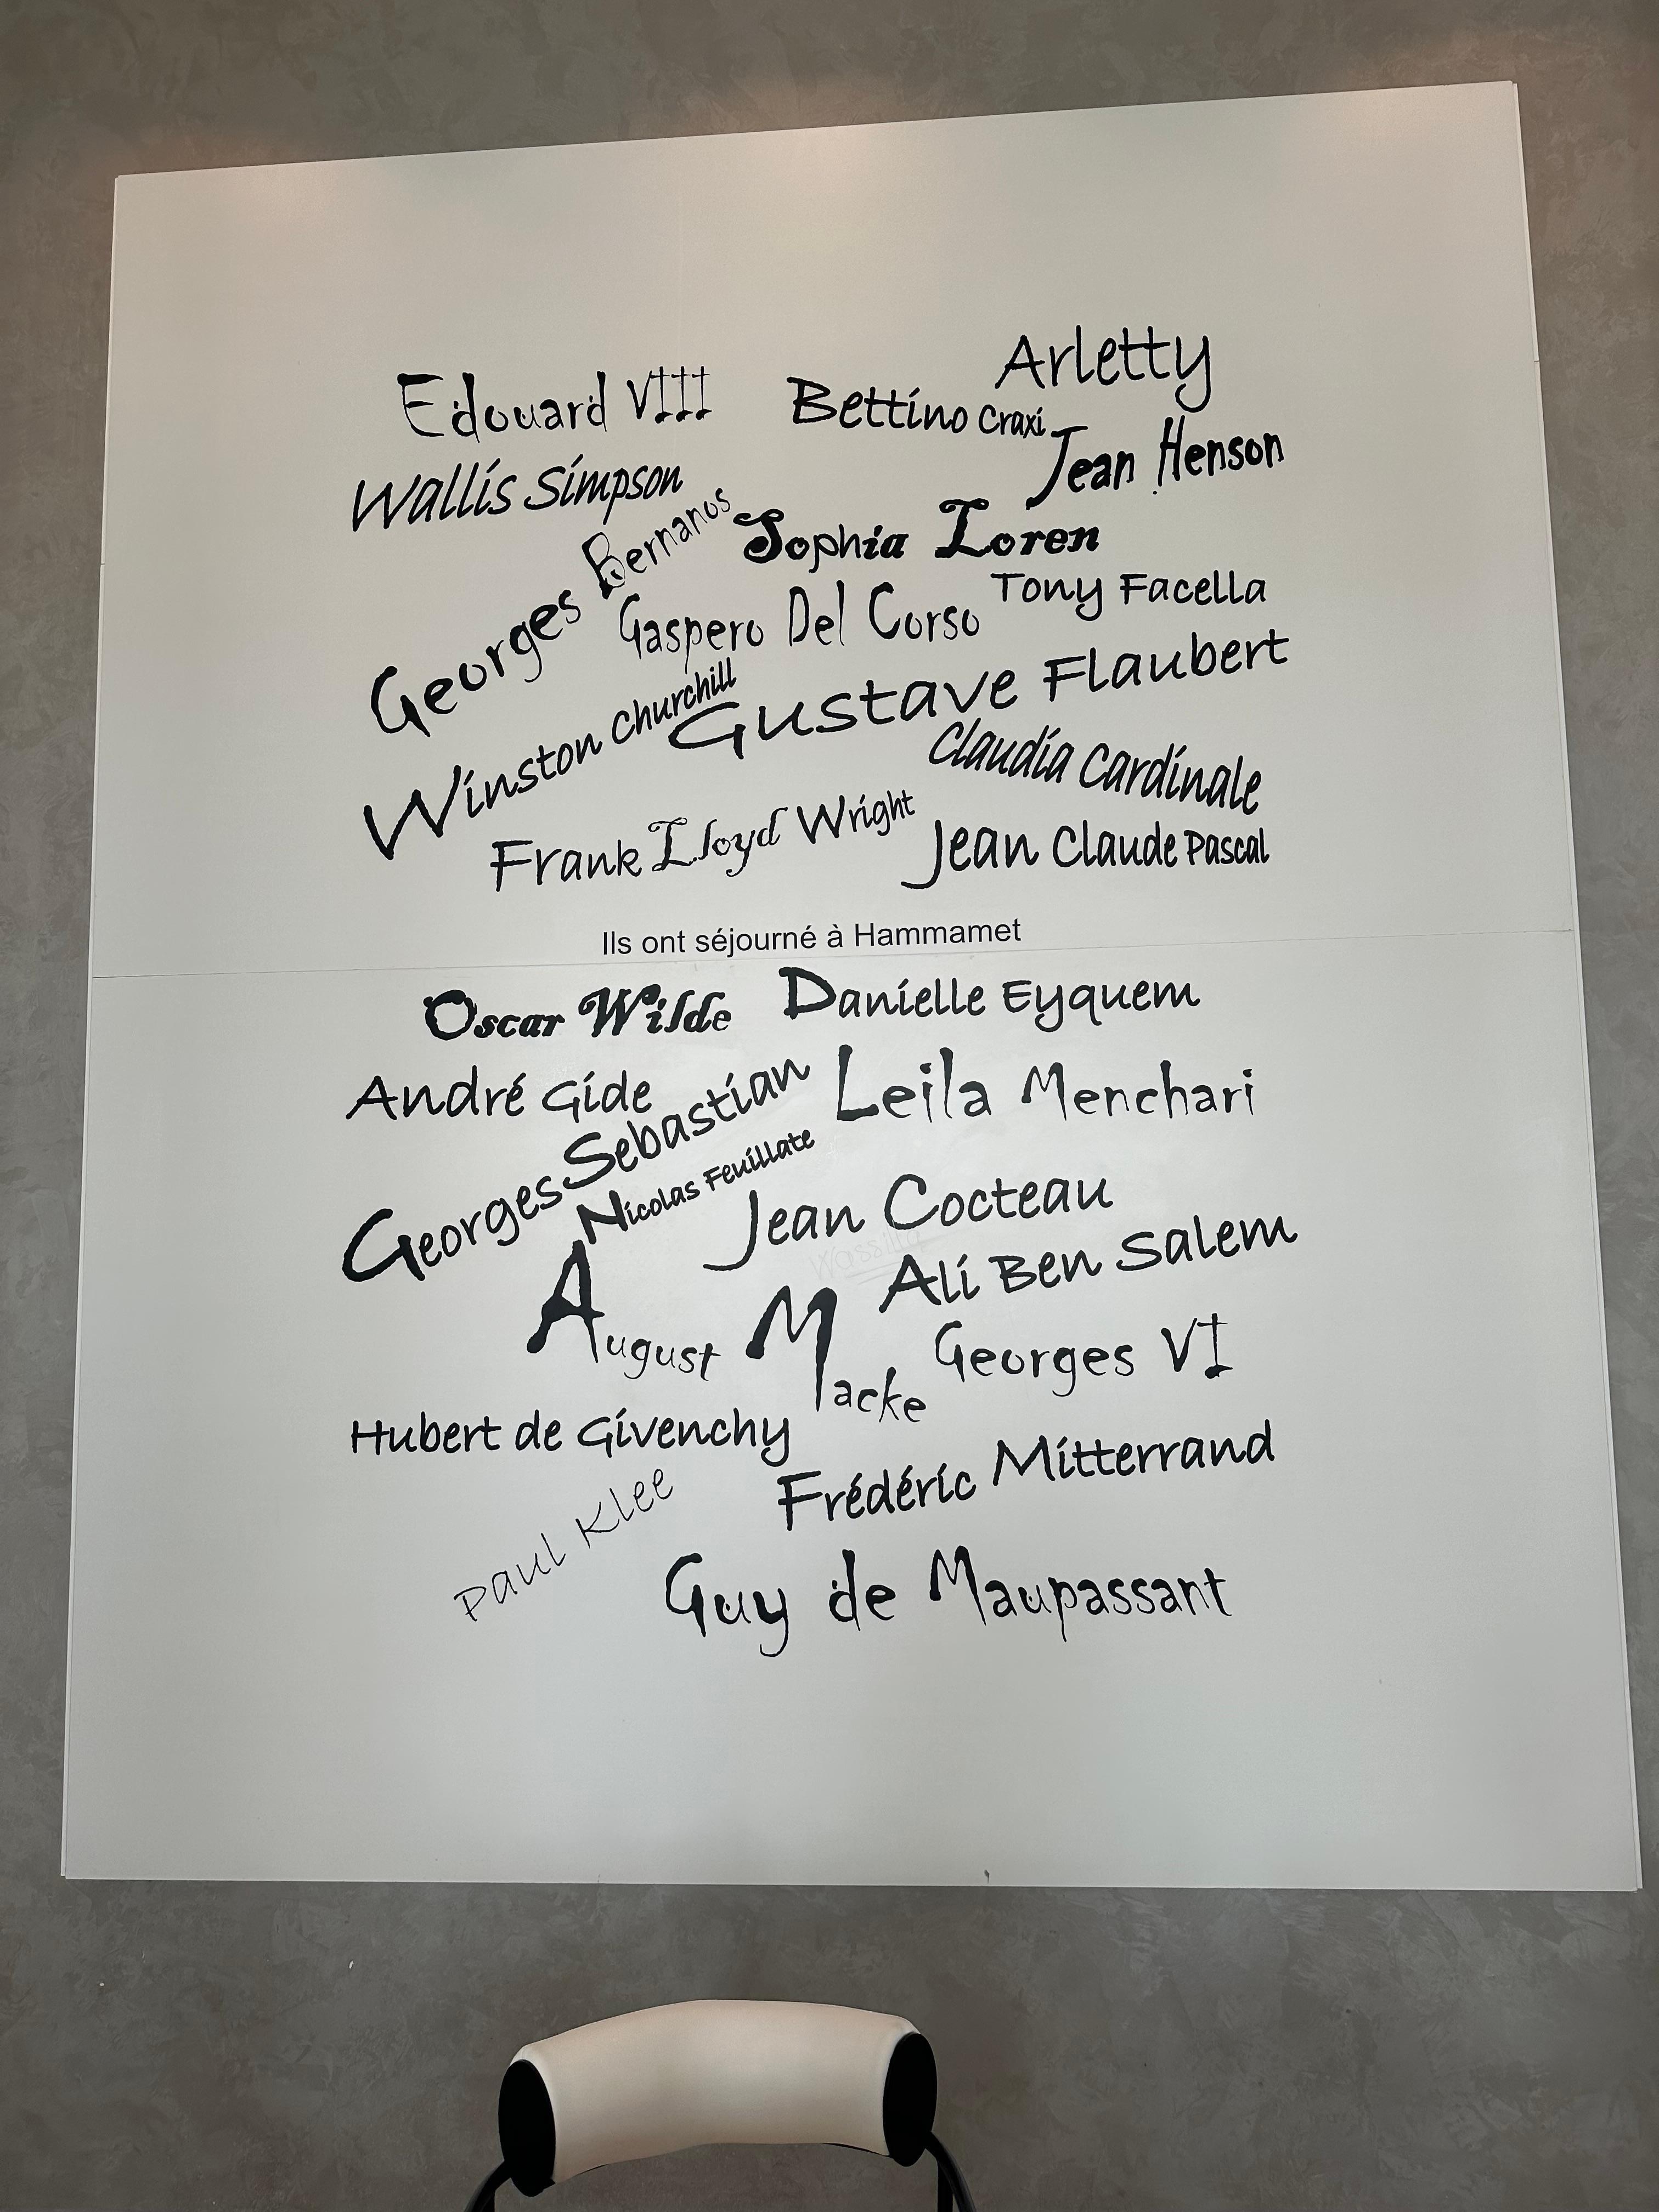 Arletty
Edouard VIII
Bettino Craxi
Jean Henson
Wallis Simpson
Georges Bernanos
Sophia Loren
Tony Facella
Gaspero Del Corso
Gustave Flaubert
Winston Churchill
Claudia Cardinale
Frank Lloyd Wright
Jean Claude Pascal
Ils ont séjourné à Hammamet
Oscar Wilde
Danielle Eyquem
André Gide
Leila Menchari
Georges Sebastian
Nicolas Feuillate
Jean Cocteau
Ali Ben Salem
August Macke
Georges VI
Hubert de Givenchy
Frédéric Mitterrand
Paul Klee
Guy de Maupassant